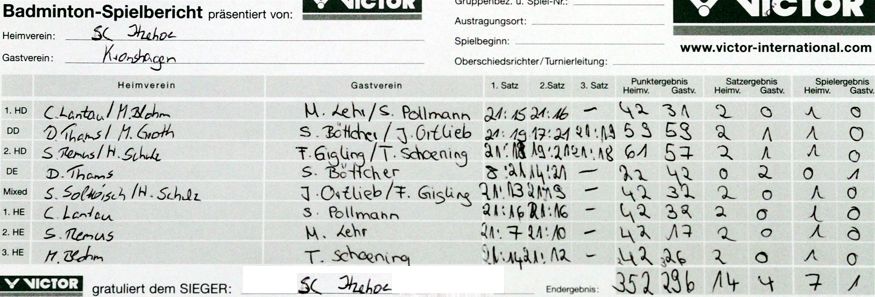 VICTOR
Badminton-Spielbericht präsentiert von:
Gruppenbez. u. Spiel-Nr.:
Heimverein: SC Itzehoe
Austragungsort:
Gastverein: Kronshagen
Spielbeginn:
www.victor-international.com
Oberschiedsrichter/Turnierleitung:
Heimverein Gastverein 1. Satz 2. Satz 3. Satz Punktergebnis Heimv. Gastv. Satzergebnis Heimv. Gastv. Spielergebnis Heimv. Gastv.
1. HD C. Lantau/M. Blohm M. Lehr/S. Pollmann 21:15 21:16 – 42 31 2 0 1 0
DD D Thams/M. Groth S. Böttcher/J. Ortlieb 21:19 17:21 21:19 59 59 2 1 1 0
2. HD S. Remus/H. Schulz F. Gigling/T. Schoening 21:18 19:21 21:18 61 57 2 1 1 0
DE D. Thams S. Böttcher 8:21 14:21 – 22 42 0 2 0 1
Mixed S. /H. Schulz J. Ortlieb/F. Gigling 21:13 – 42 32 2 0 1 0
1. HE C. Lantau S. Pollmann 21:16 21:16 – 42 32 2 0 1 0
2. HE S. Remus M. Lehr 21:7 21:10 – 42 17 2 0 1 0
3. HE M. Blohm T. Schoening 21:14 21:12 – 42 26 2 0 1 0
VICTOR gratuliert dem SIEGER: SC Itzehoe Endergebnis: 352 296 14 4 7 1